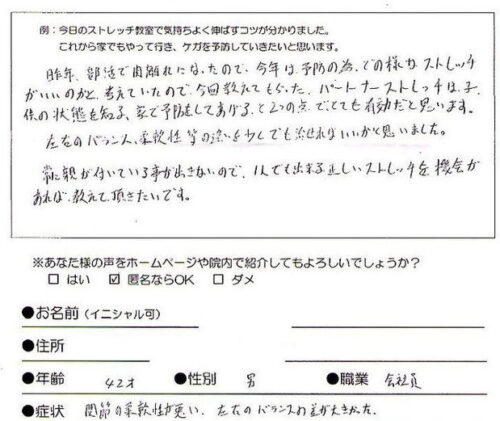 例：今日のストレッチ教室で気持ちよく伸ばすコツが分かりました。
これから家でもやって行き、ケガを予防していきたいと思います。
昨年、部活で肉離れになったので、今年は予防の為、どの様なストレッチ
がいいのかと考えていたので、今回教えてもらった、パートナーストレッチは、子
供の状態を知る、家で予防をしてあげる、と2つの点でとても有効だと思います。
左右のバランス、柔軟性等の違いを少しでも治せればいいかと思いました。
常に親が付いている事が出きないので、1人でも出来る正しいストレッチを機会が
あれば、教えて頂きたいです。
※あなた様の声をホームページや院内で紹介してもよろしいでしょうか？
□ はい ☑ 匿名ならOK □ ダメ
●お名前（イニシャル可）
●住所
●年齢 42才 ●性別 男 ●職業 会社員
●症状 関節の柔軟性が悪い、左右のバランスの差が大きかった。